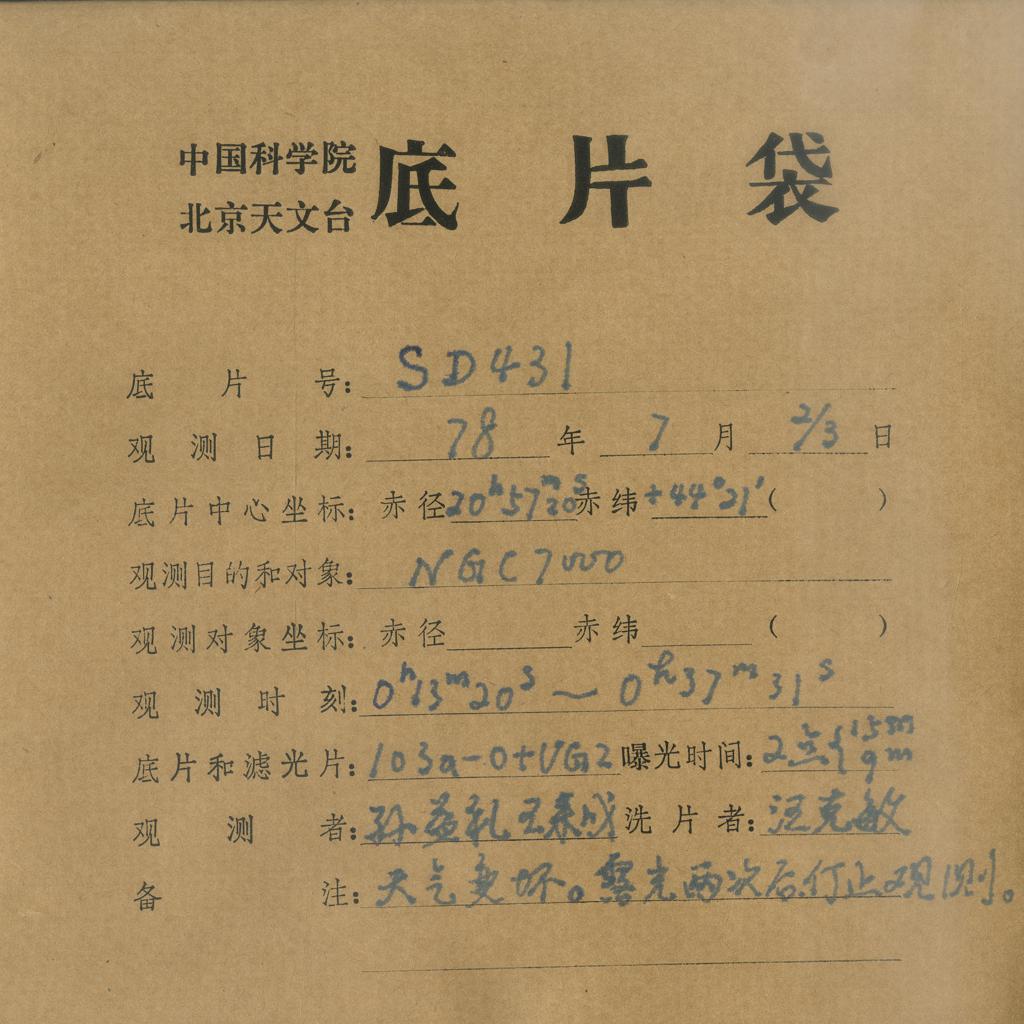 中国科学院
北京天文台
底片袋
底片号: SD431
观测日期: 78年7月2/3日
底片中心坐标: 赤径20ʰ57ᵐ20ˢ赤纬+44°21′( )
观测目的和对象: NGC7000
观测对象坐标: 赤径 赤纬 ( )
观测时刻: 0ʰ13ᵐ20ˢ～0ʰ37ᵐ31ˢ
底片和滤光片: 103a-O+UG2 曝光时间: 2点{15m 9m
观测者: 孙益礼 王 成 洗片者: 汪克敏
备注: 天气变坏。露光两次后停止观测。